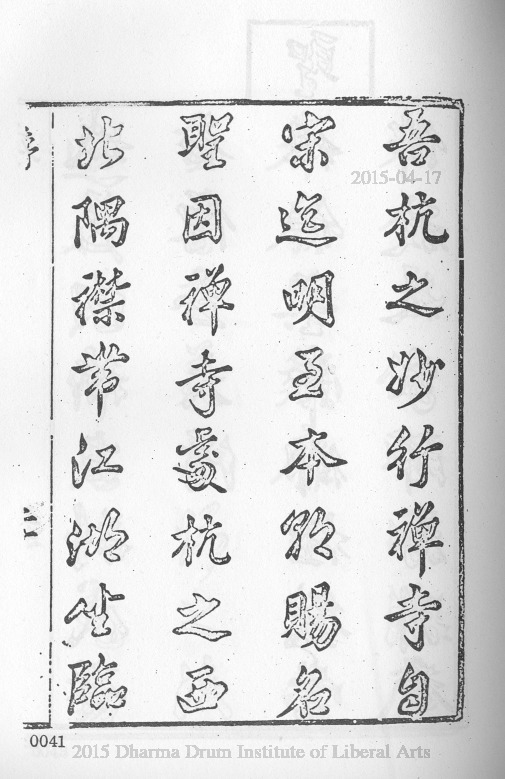 吾杭之妙行禅寺自
宋迄明至本朝賜名
聖因禅寺處杭之西
北隅襟带江湖坐臨
序
一
2015-04-17
0041
2015 Dharma Drum Institute of Liberal Arts